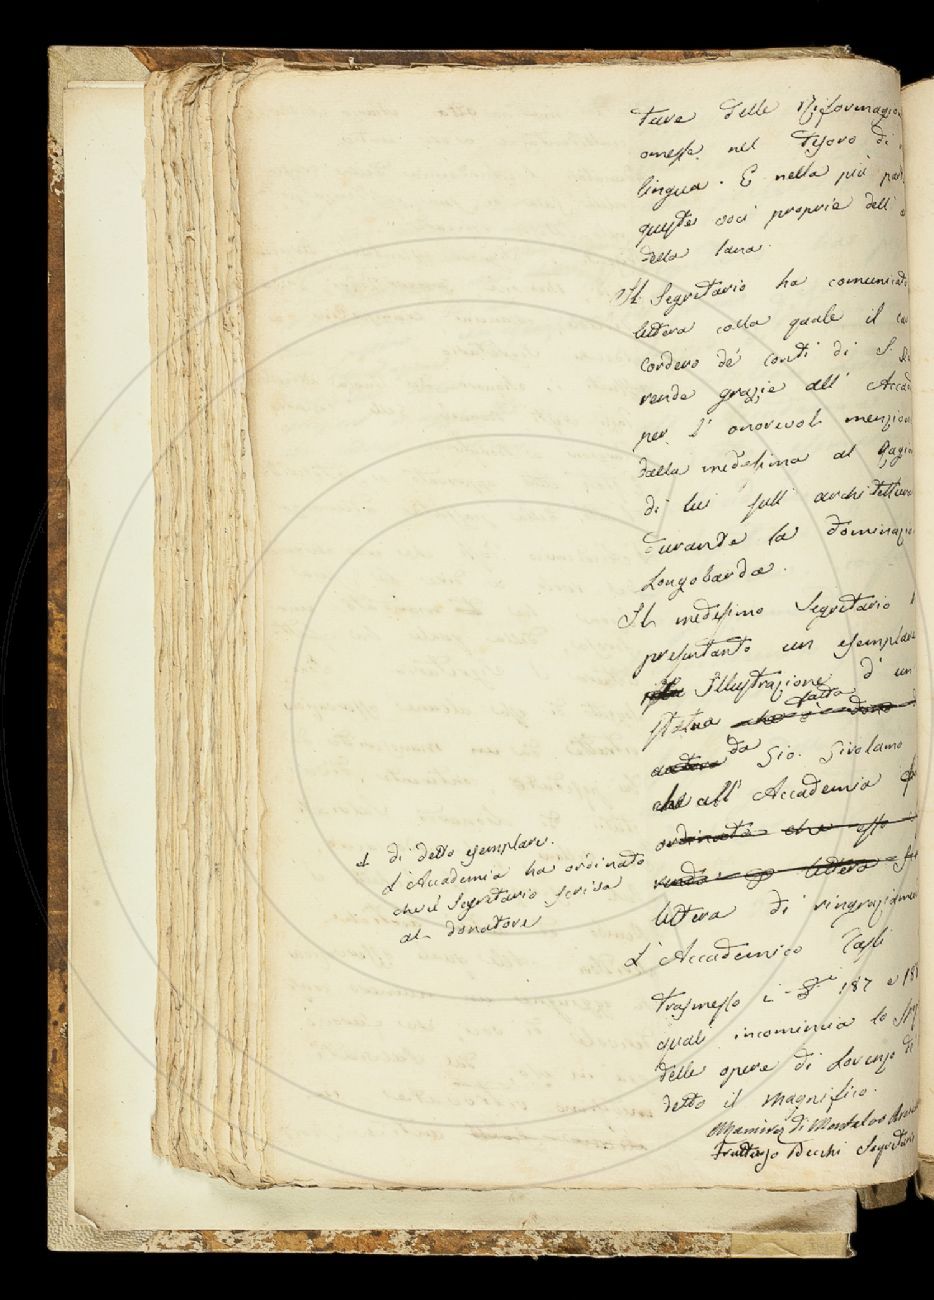 ture delle Riformagio
omesse nel Tesoro di
lingua. E nella più par
queste voci proprie dell'
della lana.
Il Segretario ha comunicat
lettera colla quale il ca
Cordero de' conti di S.
rende grazie all' Accad
per l' onorevole menzion
dalla medesima al Ragio
di lui sull' architettura
durante la dominazio
Longobarda.
Il medesimo Segretario
presentato un esemplare
Illustrazione d' un
statua che è dono fatta
da Gio. Girolamo
che all' Accademia
ordinato che esso
renda lettera
lettera di ringraziame
L' Accademico
trasmesso i 187 e 18
quali incomincia lo Spo
delle opere di Lorenzo di
detto il Magnifico.
Ramirez di Montalvo
Fruttuoso Becchi Segretario
di detto esemplare.
L'Accademia ha ordinato
che il Segretario scriva
al donatore